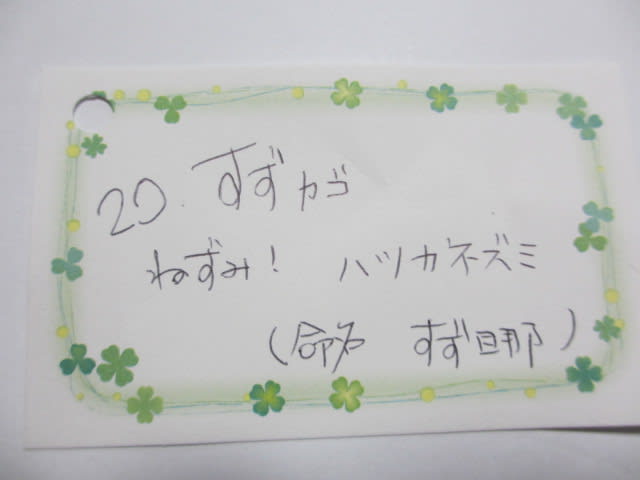 20. すずカゴ
ねずみ! ハツカネズミ
(命名 すず旦那)